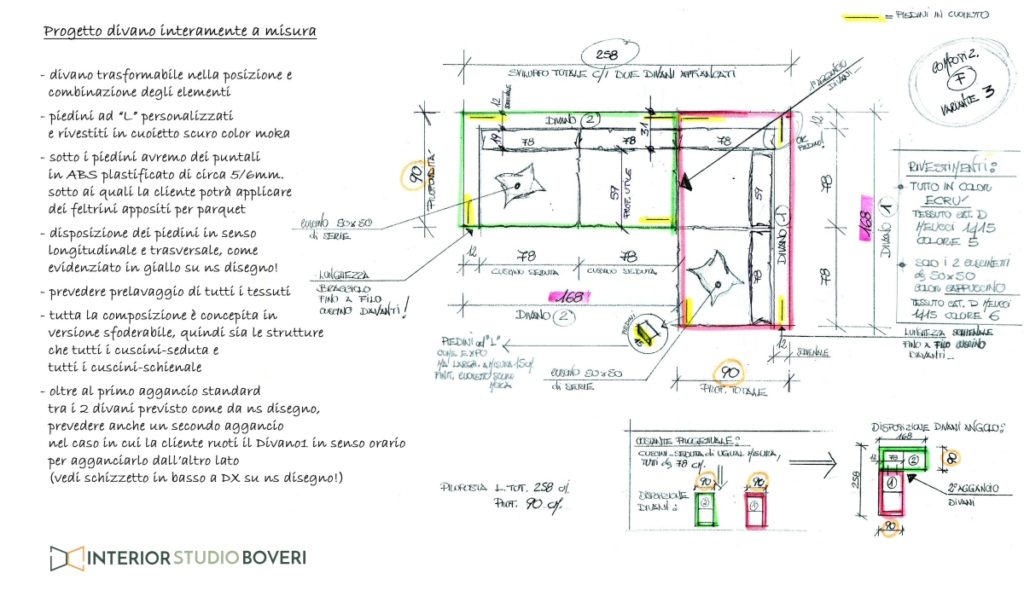 Progetto divano interamente a misura
- divano trasformabile nella posizione e
combinazione degli elementi
- piedini ad "L" personalizzati
e rivestiti in cuoietto scuro color moka
- sotto i piedini avremo dei puntali
in ABS plastificato di circa 5/6mm.
sotto ai quali la cliente potrà applicare
dei feltrini appositi per parquet
- disposizione dei piedini in senso
longitudinale e trasversale, come
evidenziato in giallo su ns disegno!
- prevedere prelavaggio di tutti i tessuti
- tutta la composizione è concepita in
versione sfoderabile, quindi sia le strutture
che tutti i cuscini-seduta e
tutti i cuscini-schienale
- oltre al primo aggancio standard
tra i 2 divani previsto come da ns disegno,
prevedere anche un secondo aggancio
nel caso in cui la cliente ruoti il Divano1 in senso orario
per agganciarlo dall'altro lato
(vedi schizzetto in basso a DX su ns disegno!)
INTERIOR STUDIO BOVERI
= PIEDINI IN CUOIETTO
258
SVILUPPO TOTALE C/I DUE DIVANI AFFIANCATI
1° AGGANCIO
DIVANI
COMPOSIZ.
F
VARIANTE 3
12
SCHIENALE
DIVANO 2
31
19
78
78
OK
PIEDINO!
12
90
PROFONDITÀ
78
57
PROF. UTILE
59
78
168
DIVANO 1
DIVANO 1
78
78
CUSCINO 50x50
di SERIE
12
78
78
CUSCINO SEDUTA
CUSCINO SEDUTA
LUNGHEZZA
BRACCIOLO
FINO A FILO
CUSCINO DAVANTI!
168
DIVANO 2
PIEDINI
15
PIEDINI ad "L"
COME EXPO
MA LARGH. A MISURA 15 cm
FINIT. CUOIETTO SCURO
MOKA
CUSCINO 50x50
di SERIE
12
SCHIENALE
90
PROF. TOTALE
RIVESTIMENTI:
TUTTO IN COLOR
ECRU'
TESSUTO CAT. D
MEUCCI 1415
COLORE 5
SOLO I 2 CUSCINETTI
da 50x50
COLOR CAPPUCCINO
TESSUTO CAT. D MEUCCI
1415 COLORE 6
LUNGHEZZA SCHIENALE
FINO A FILO CUSCINO
DAVANTI...
PROPOSTA L. TOT. 258 c/.
PROF. 90 c/.
COSTANTE PROGETTUALE:
CUSCINI-SEDUTA DI UGUAL MISURA,
TUTTI da 78 c/.
DISPOSIZIONE
DIVANI:
90
90
2
1
DISPOSIZIONE DIVANI ANGOLO:
168
12
78
2
90
258
1
2° AGGANCIO
DIVANI
90